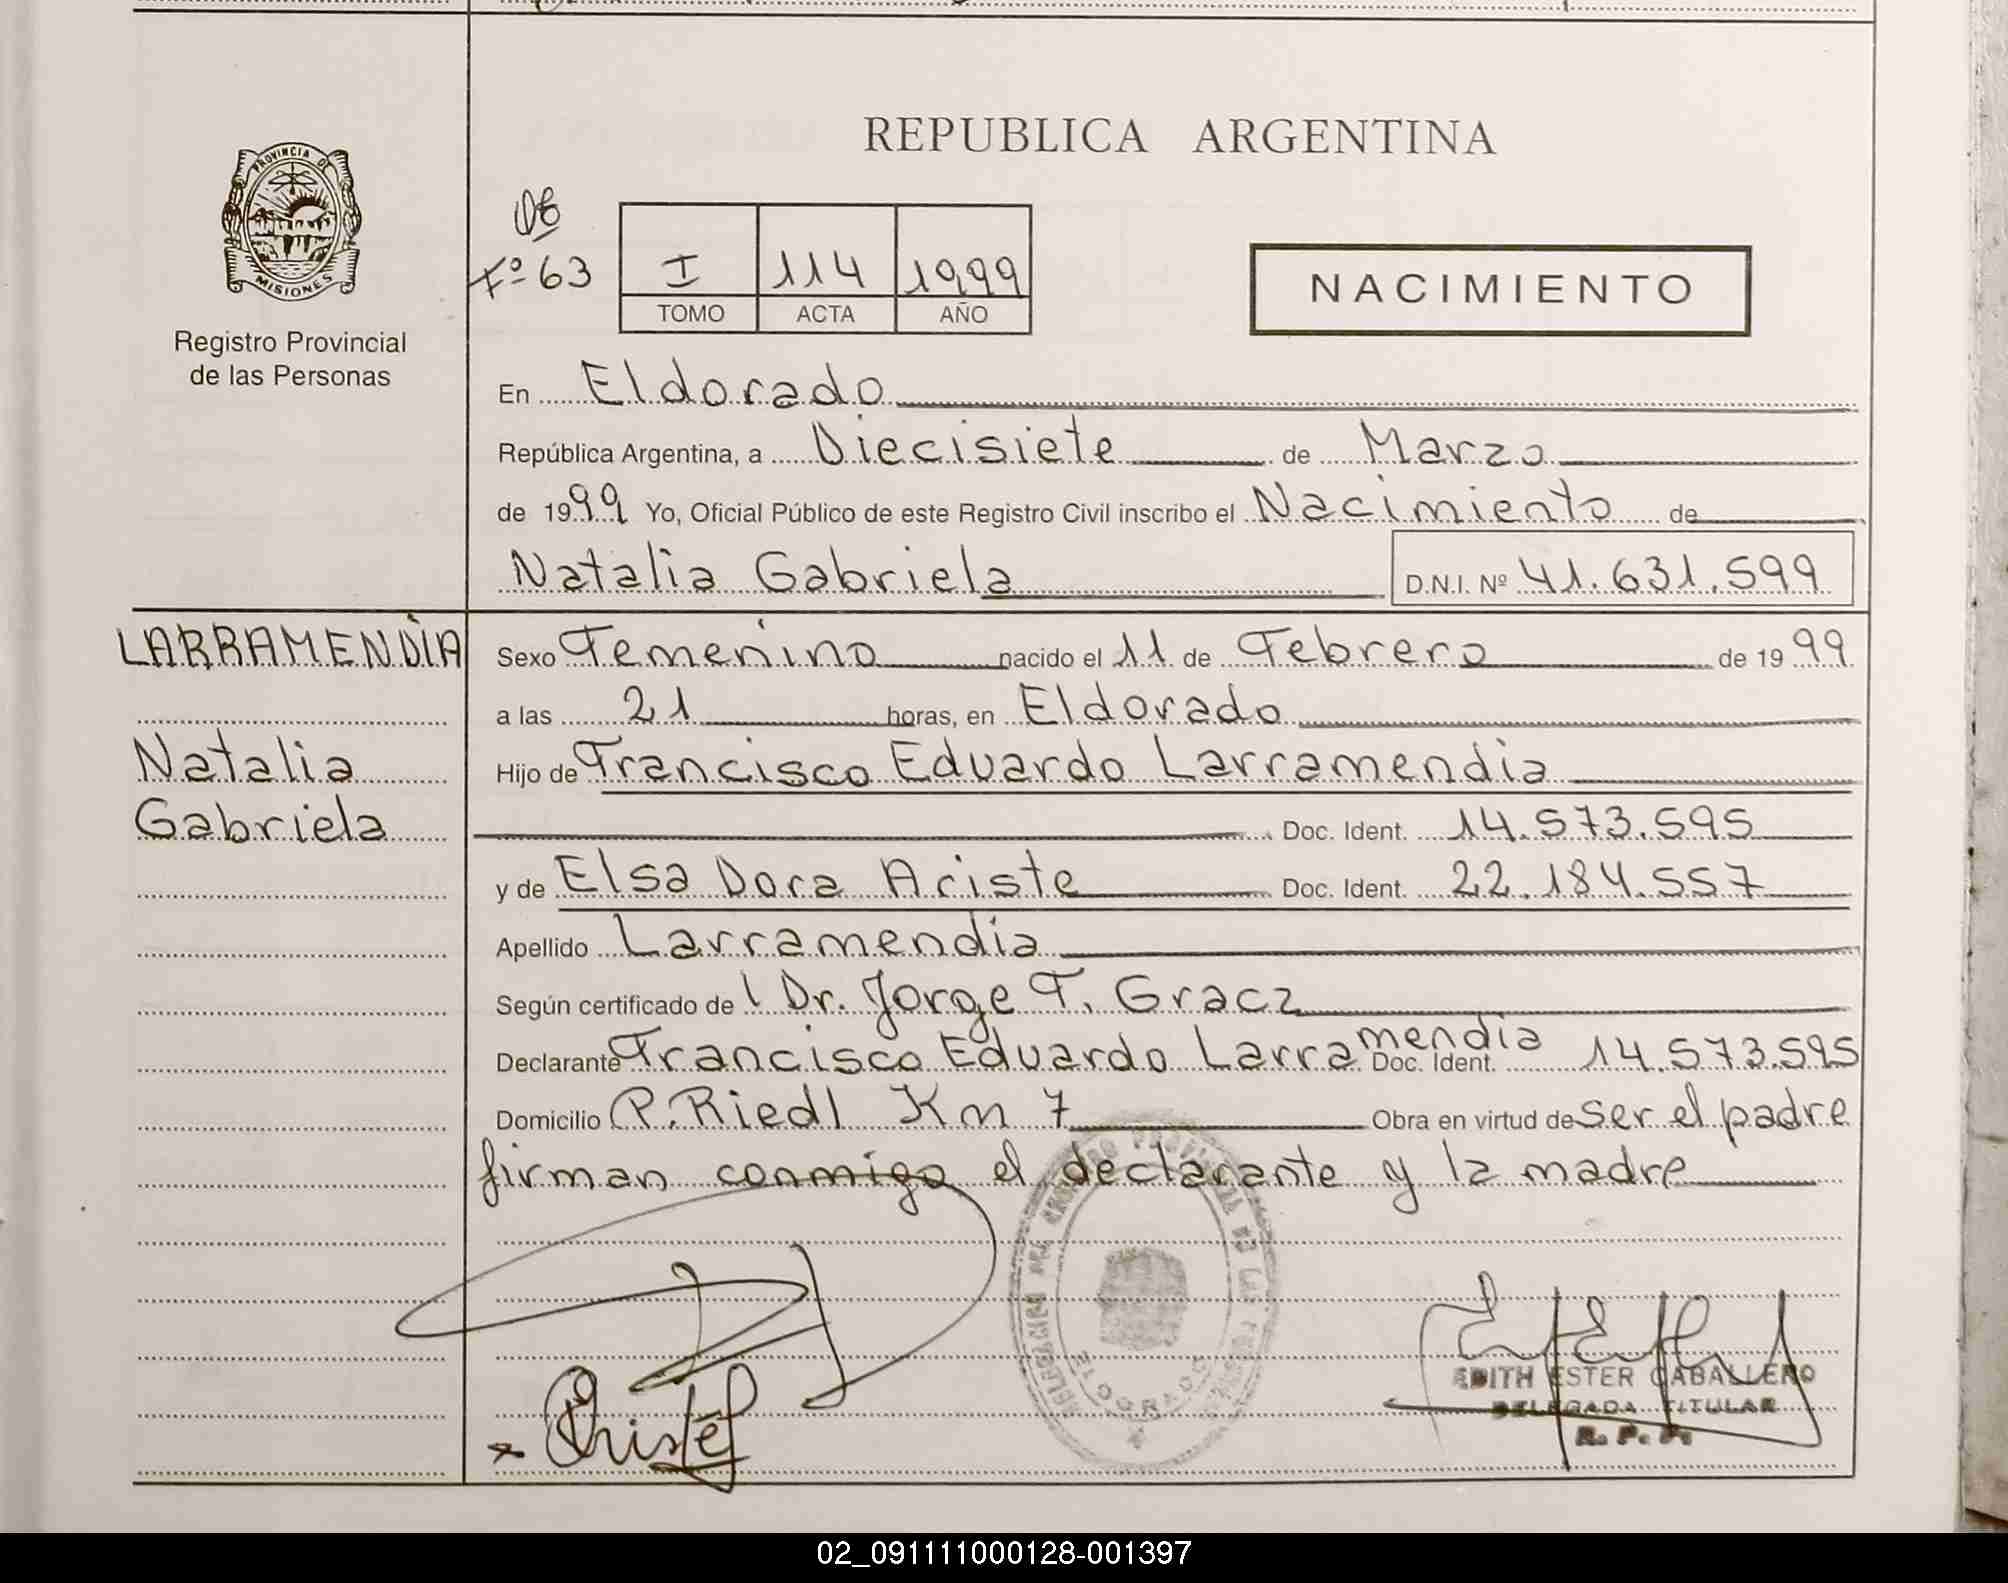 REPUBLICA ARGENTINA
PROVINCIA DE
MISIONES
Registro Provincial
de las Personas
Fº 63
I 114 1999
TOMO ACTA AÑO
NACIMIENTO
En Eldorado
República Argentina, a Diecisiete de Marzo
de 1999 Yo, Oficial Público de este Registro Civil inscribo el Nacimiento de
Natalia Gabriela D.N.I. Nº 41.631.599
LARRAMENDÍA
Natalia
Gabriela
Sexo Femenino nacido el 11 de Febrero de 1999
a las 21 horas, en Eldorado
Hijo de Francisco Eduardo Larramendía
Doc. Ident. 14.573.595
y de Elsa Dora Ariste Doc. Ident. 22.184.557
Apellido Larramendía
Según certificado de l Dr. Jorge F. Gracz
Declarante Francisco Eduardo Larramendía Doc. Ident. 14.573.595
Domicilio P. Riedl Km 7 Obra en virtud de ser el padre
firman conmigo el declarante y la madre
ELDORADO
EDITH ESTER CABALLERO
DELEGADA TITULAR
R. P. P.
02_091111000128-001397